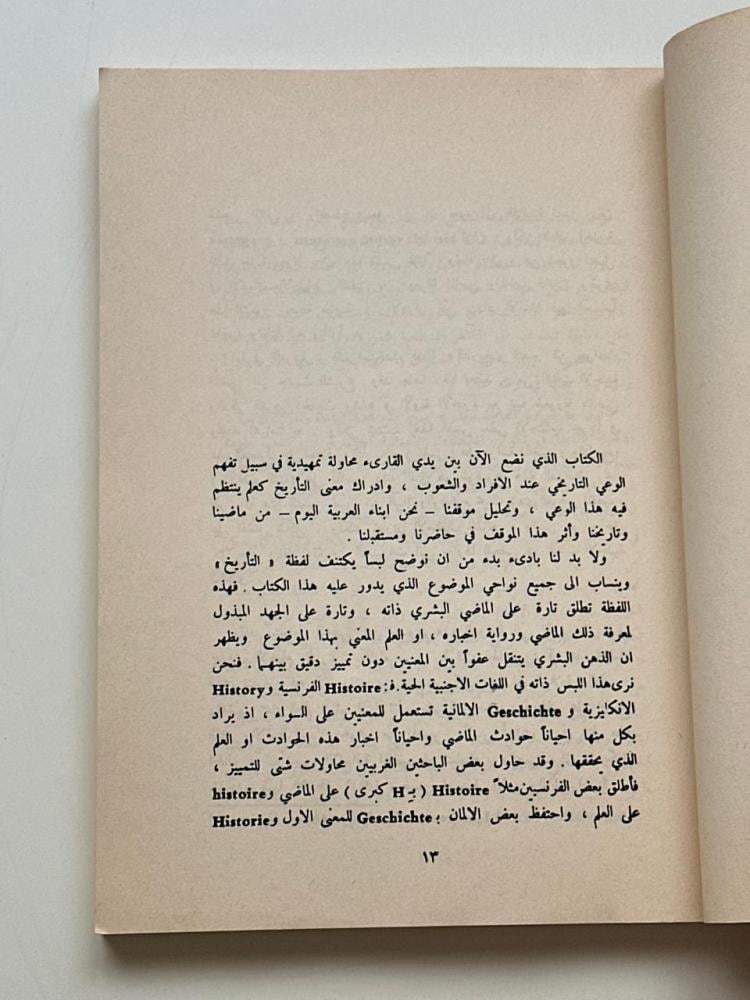 الكتاب الذي نضع الآن بين يدي القارىء محاولة تمهيدية في سبيل تفهم
الوعي التاريخي عند الافراد والشعوب ، وادراك معنى التأريخ كعلم ينتظم
فيه هذا الوعي ، وتحليل موقفنا – نحن ابناء العربية اليوم – من ماضينا
وتاريخنا وأثر هذا الموقف في حاضرنا ومستقبلنا .
ولا بد لنا بادىء بدء من ان نوضح لبساً يكتنف لفظة « التأريخ »
وينساب الى جميع نواحي الموضوع الذي يدور عليه هذا الكتاب . فهذه
اللفظة تطلق تارة على الماضي البشري ذاته ، وتارة على الجهد المبذول
لمعرفة ذلك الماضي ورواية اخباره ، او العلم المعني بهذا الموضوع ويظهر
ان الذهن البشري يتنقل عفواً بين المعنيين دون تمييز دقيق بينهما . فنحن
نرى هذا اللبس ذاته في اللغات الاجنبية الحية . فـ: Histoire الفرنسية و History
الانكليزية و Geschichte الالمانية تستعمل للمعنيين على السواء ، اذ يراد
بكل منها احياناً حوادث الماضي واحياناً اخبار هذه الحوادث او العلم
الذي يحققها . وقد حاول بعض الباحثين الغربيين محاولات شتى للتمييز ،
فأطلق بعض الفرنسيين مثلاً Histoire ( بـ H كبرى ) على الماضي و histoire
على العلم ، واحتفظ بعض الالمان بـ Geschichte للمعنى الاول و Historie
١٣